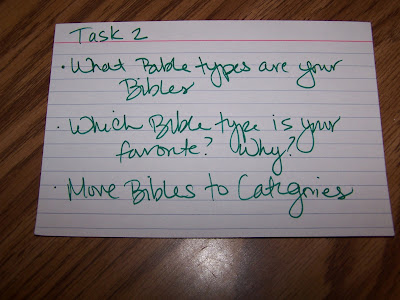 Task 2
• What Bible types are your
Bibles
• Which Bible type is your
favorite? Why?
• Move Bibles to Categories